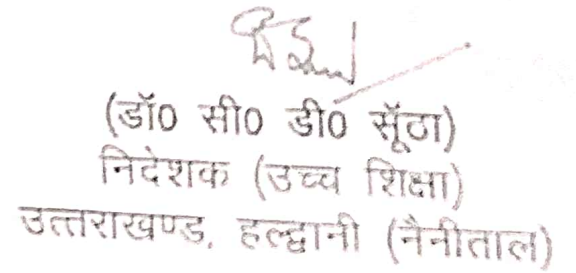 (डॉ0 सी0 डी0 सूँठा)
निदेशक (उच्च शिक्षा)
उत्तराखण्ड, हल्द्वानी (नैनीताल)